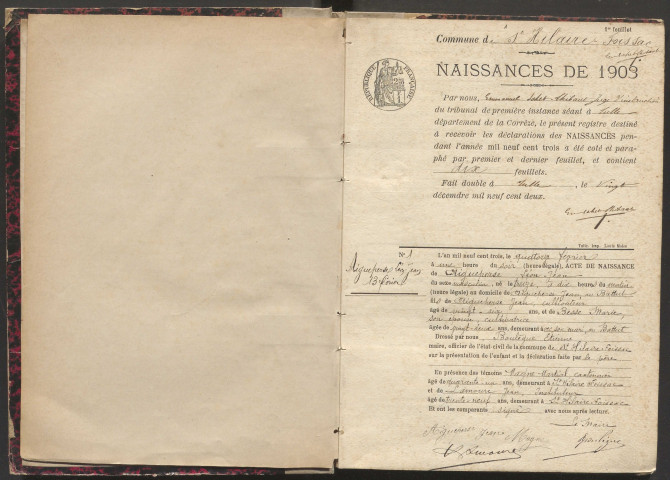 1er feuillet
Commune de St Hilaire-Foissac
NAISSANCES DE 1903
RÉPUBLIQUE FRANÇAISE
Par nous, Juge
du tribunal de première instance séant à Tulle
département de la Corrèze, le présent registre destiné
à recevoir les déclarations des NAISSANCES pen-
dant l'année mil neuf cent trois a été coté et para-
phé par premier et dernier feuillet, et contient
dix feuillets.
Fait double à Tulle, le vingt
décembre mil neuf cent deux.
N° 1
Aigueperse Léon Jean
13 février
L'an mil neuf cent trois, le quatorze février
à une heure du soir (heure légale), ACTE DE NAISSANCE
de Aigueperse Léon Jean
du sexe masculin, né le treize, à dix heures du matin
(heure légale) au domicile de Aigueperse Jean, au Battut
fils de Aigueperse Jean, cultivateur
âgé de vingt six ans, et de Besse Marie,
son épouse, cultivatrice
âgée de vingt deux ans, demeurant avec son mari, au Battut
Dressé par nous Etienne
maire, officier de l'état civil de la commune de St Hilaire-Foissac
sur la présentation de l'enfant et la déclaration faite par le père
En présence des témoins Magne Martial cantonnier
âgé de quarante un ans, demeurant à St Hilaire Foissac
et de Jean, instituteur
âgé de trente neuf ans, demeurant à St Hilaire-Foissac
Et ont les comparants signé avec nous après lecture.
Le Maire
Aigueperse Magne